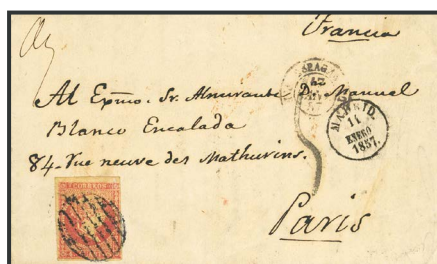 Francia
Al Exmo. Sr. Almirante D. Manuel
Blanco Encalada
84. Rue neuve des Mathurins.
Paris
MADRID.
11
ENERO
1857.
CORREOS